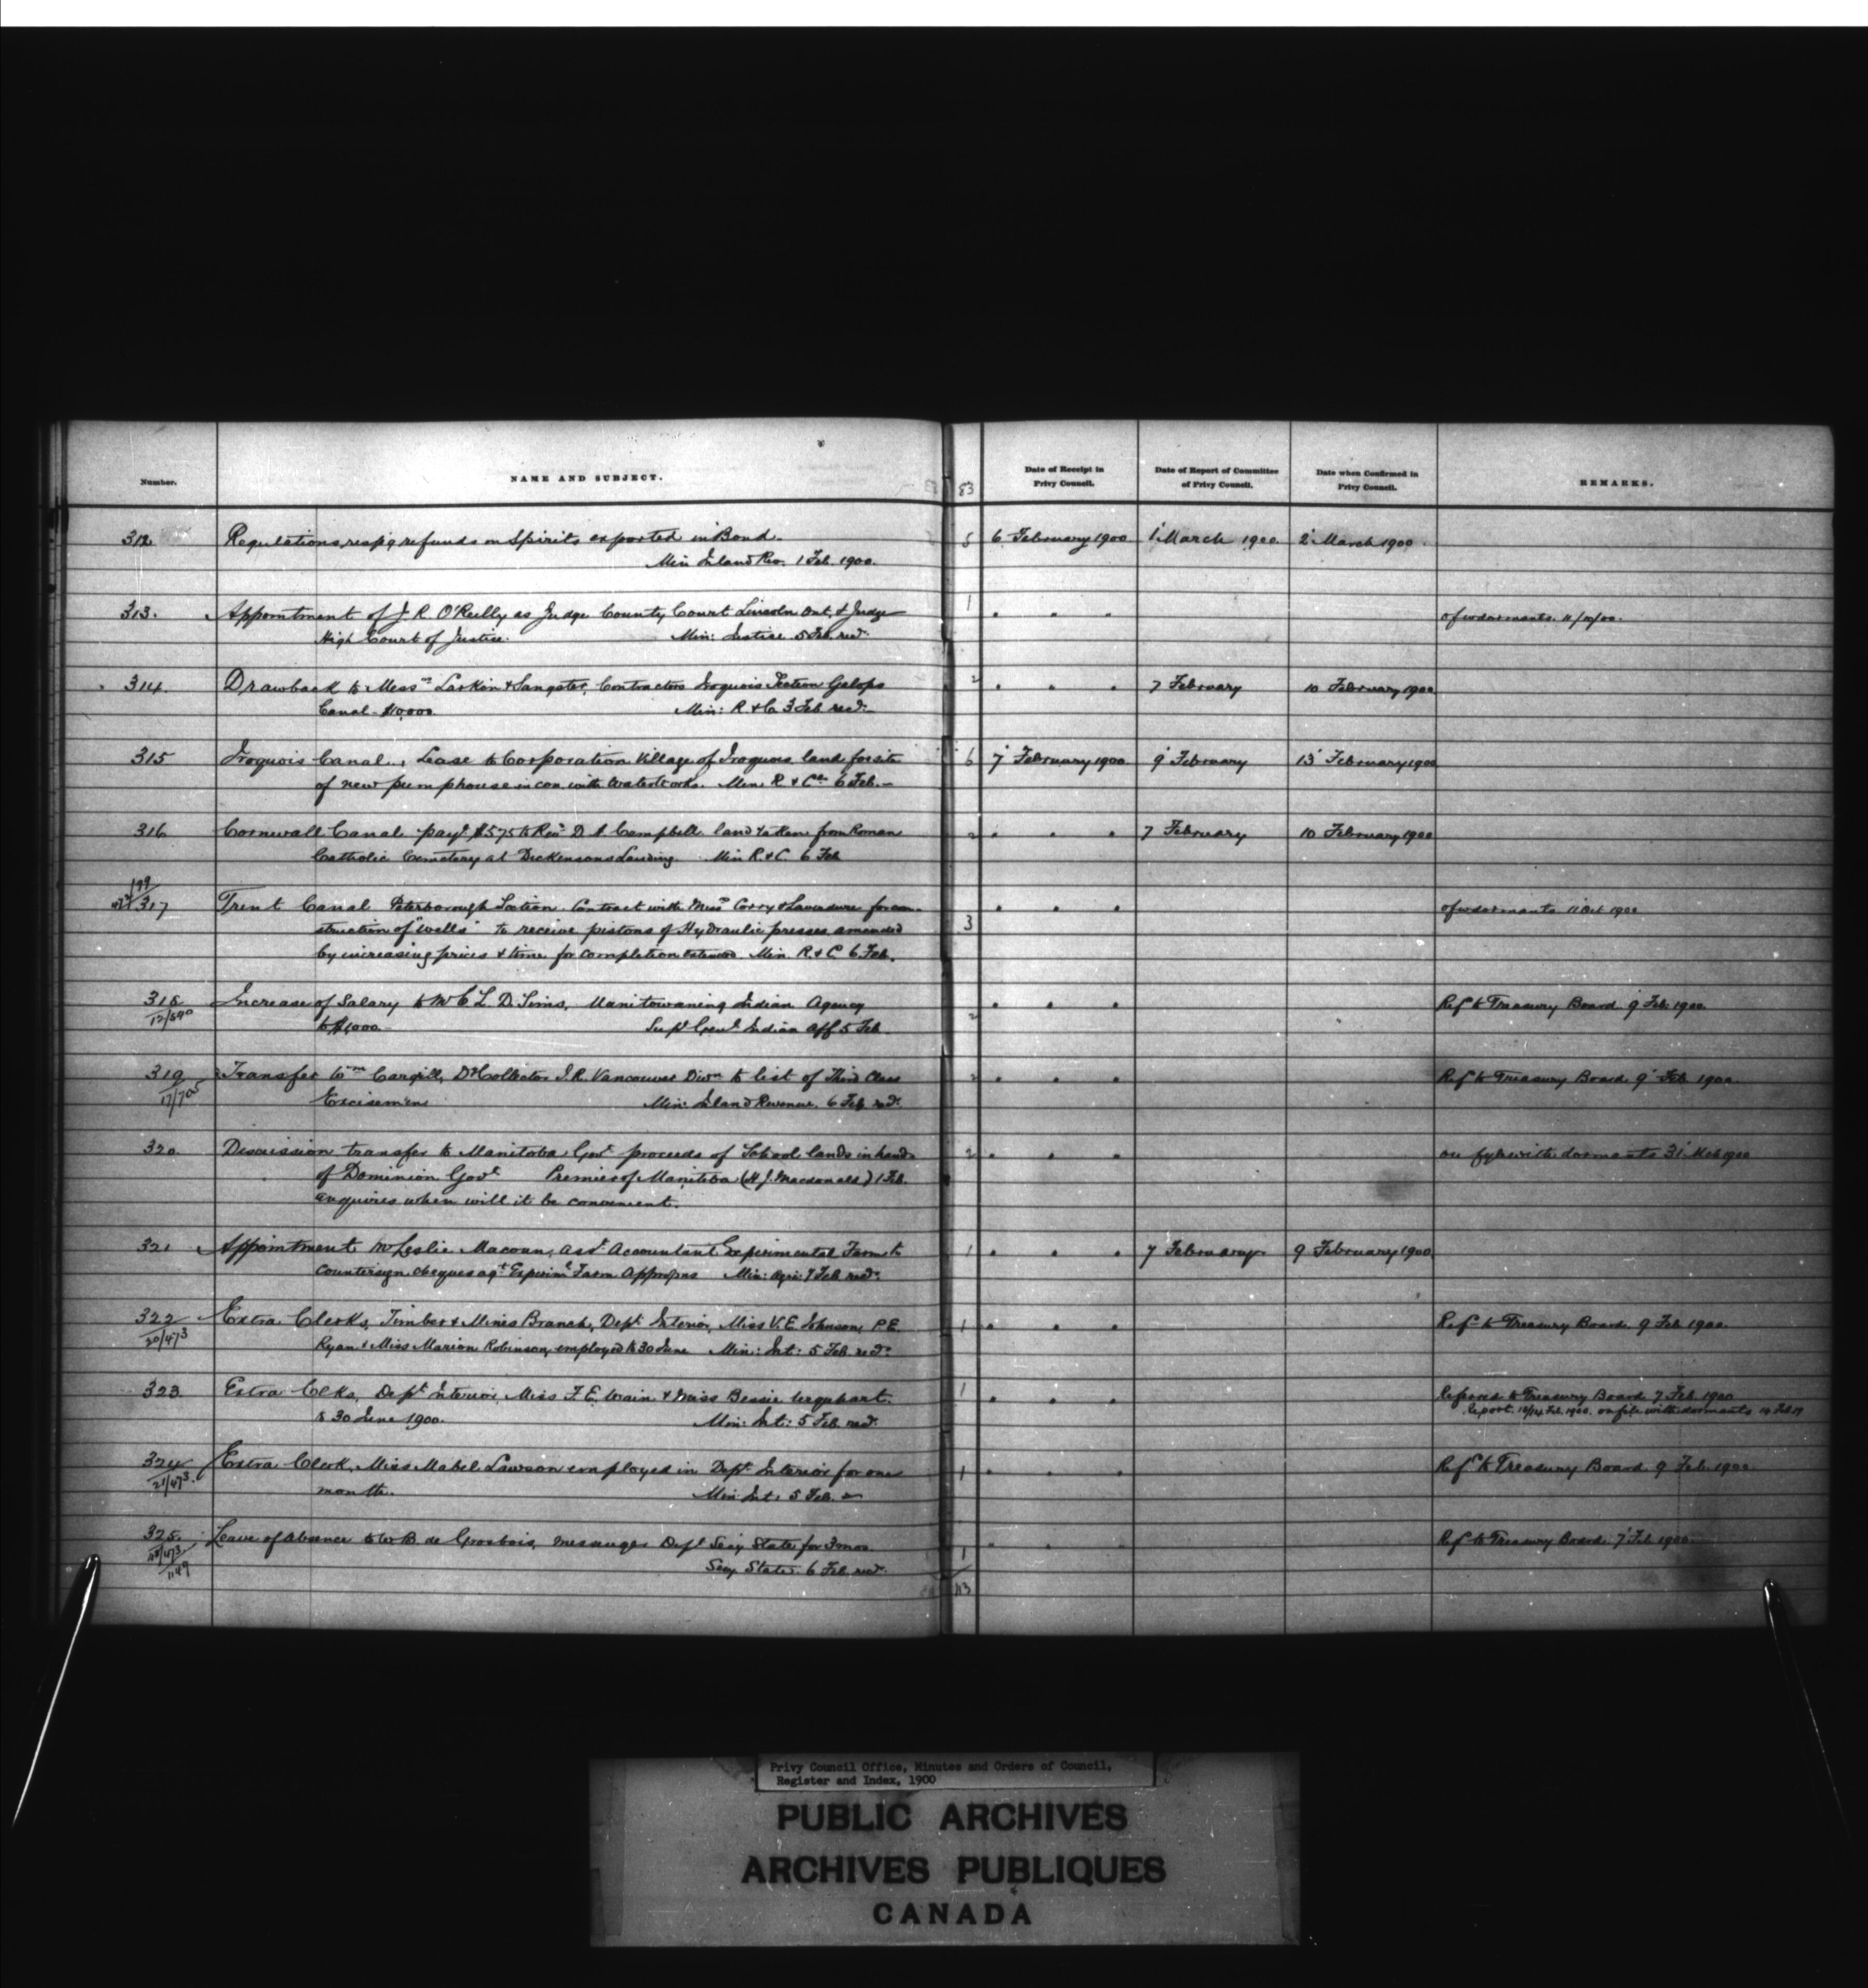 Number. NAME AND SUBJECT. 83 Date of Receipt in Privy Council. Date of Report of Committee of Privy Council. Date when Confirmed in Privy Council. REMARKS.
312 Regulations resp'g refunds on Spirits exported in Bond. 5 6 February 1900 1 March 1900 2 March 1900
Min Inland Rev. 1 Feb. 1900.
313. Appointment of J R O'Reilly as Judge County Court Lincoln Ont. & Judge 1 " " "
High Court of Justice. Min: Justice 5 Feb. recd.
314. Drawback to Messrs Larkin & Sangster, Contractors Iroquois Section Galops 2 " " " 7 February 10 February 1900
Canal - $10,000. Min: R & C. 3 Feb recd.
315 Iroquois Canal, Lease to Corporation Village of Iroquois land for site 6 7 February 1900 9 February 13 February 1900
of new pumphouse in con. with Waterworks. Min. R & Cls 6 Feb.
316 Cornwall Canal payt $575 to Revd D A Campbell land taken from Roman 2 " " " 7 February 10 February 1900
Catholic Cemetery at Dickensons Landing Min R & C. 6 Feb
317 Trent Canal Peterborough Section. Contract with Messrs Corry & Laverdure for con- " " "
struction of "wells" to receive pistons of Hydraulic presses amended 3
by increasing prices & time for completion extended Min. R. & C 6 Feb.
318 Increase of Salary to Mr C L D Sims, Manitowaning Indian Agency 2 " " " Ref to Treasury Board 9 Feb 1900
12/540 to $1,000 Supt Genl Indian Aff 5 Feb
319 Transfer Wm Cargill, Dy Collector I.R. Vancouver Divn to list of Third Class 2 " " " Ref to Treasury Board 9 Feb 1900
Excisemen Min: Inland Revenue. 6 Feb recd.
320 Discussion transfer to Manitoba Govt proceeds of School lands in hands 2 " " " on fyle with dormants 31 Mch 1900
of Dominion Govt Premier of Manitoba (H J. Macdonald) 1 Feb.
enquires when will it be convenient.
321 Appointment Mr Leslie Macoun, asst Accountant Experimental Farm to 1 " " " 7 February 9 February 1900
countersign cheques agt Experiml Farm Appropns Min: Agri: 7 Feb recd.
322 Extra Clerks, Timber & Mines Branch, Dept Interior, Miss V.E. Johnson, P.E. 1 " " " Ref to Treasury Board 9 Feb 1900
20/473 Ryan & Miss Marion Robinson, employed to 30 June Min: Int: 5 Feb. recd.
323. Extra Clks, Dept Interior, Miss F. E. Wain & Miss Bessie Urquhart 1 " " " Referred to Treasury Board 7 Feb. 1900
to 30 June 1900. Min: Int: 5 Feb recd. on file with dormants
324 Extra Clerk, Miss Mabel Lawson employed in Dept Interior for one 1 " " " Ref to Treasury Board 9 Feb. 1900
21/473. month. Min Int: 5 Feb.
325. Leave of absence to W B de Grosbois, messenger Dept Secy State for 3 mos 1 " " " Ref to Treasury Board 7 Feb 1900
Secy State. 6 Feb. recd.
Privy Council Office, Minutes and Orders of Council,
Register and Index, 1900
PUBLIC ARCHIVES
ARCHIVES PUBLIQUES
CANADA